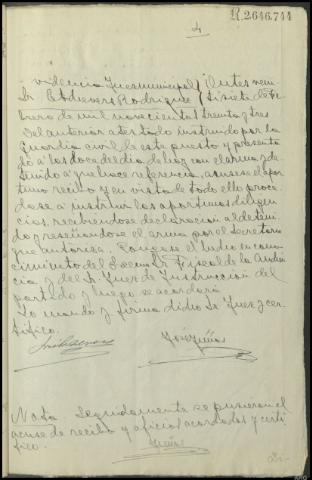 R.2646.744
4
videncia Juez municipal
Sr. Etchevers Rodriguez
brero de mil novecientos treinta y tres
Del anterior atestado instruido por la
Guardia civil de este puesto y presenta
do a las doce del dia de hoy con el arma y de
tenido a que hace referencia, acusese el opor
tuno recibo y en vista de todo ello proce
dase a instruir las oportunas diligen
cias, recibiendose declaracion al deteni
do y reseñandose el arma por el Secretario
que autoriza. Pongase el hecho en cono
cimiento del Excmo. Sr. Fiscal de la Audien
cia y del Sr. Juez de Instruccion del
partido y luego se acordará
Lo mando y firma dicho Sr. Juez y cer
tifico.
Nota Seguidamente se pusieron el
acuse de recibo y oficios acordados y certi
fico.